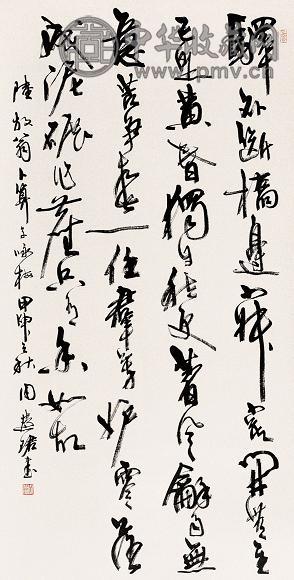 驛外斷橋邊寂寞開無主
已是黄昏獨自愁更著風龢雨無
意苦爭春一任羣芳妒零落
成泥碾作塵只有香如故
陸放翁卜算子詠梅甲申之秋周慧珺書
中华收藏网
www.pmv.cn